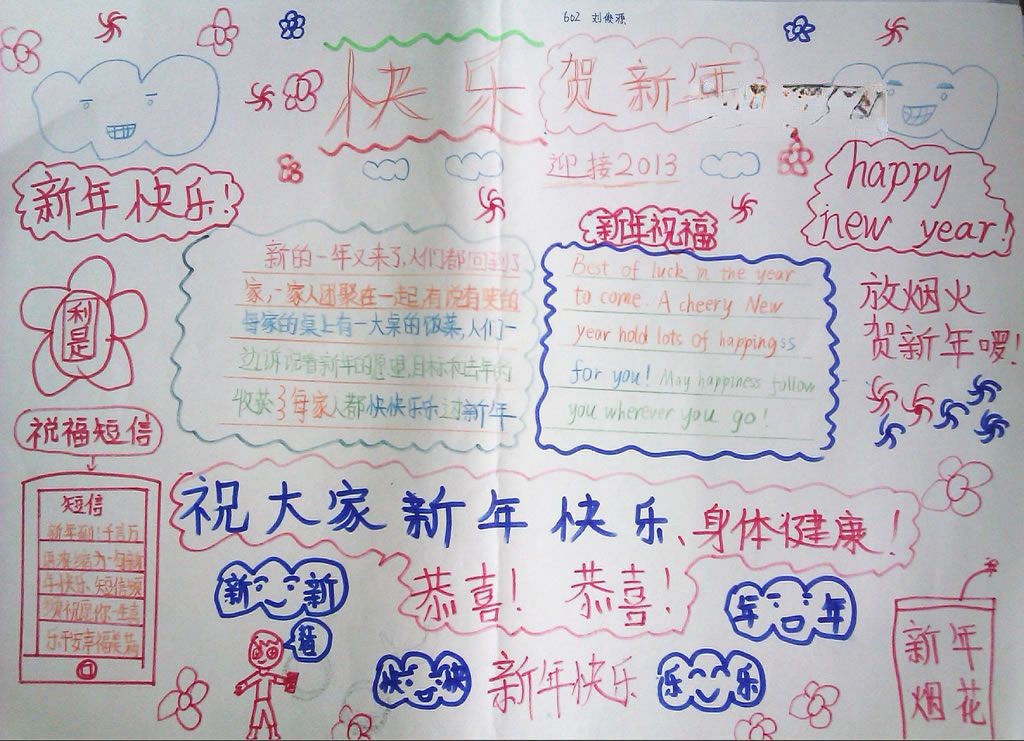 602 刘俊源
快乐
贺新年
迎接2013
新年快乐!
happy
new year!
新年祝福
新的一年又来了,人们都回到了
家,一家人团聚在一起,有说有笑的
每家的桌上有一大桌的饭菜,人们一
边诉说着新年的愿望,目标和去年的
收获了每家人都快快乐乐过新年
Best of luck in the year
to come. A cheery New
year hold lots of happingss
for you! May happiness follow
you wherever you go!
放烟火
贺新年啰!
利是
祝福短信
短信
新年到!千言万
年快乐、短信频
频祝愿你一生喜
祝大家新年快乐、身体健康!
恭喜! 恭喜!
新 新
年 年
快 快
新年快乐
乐 乐
新年
烟花